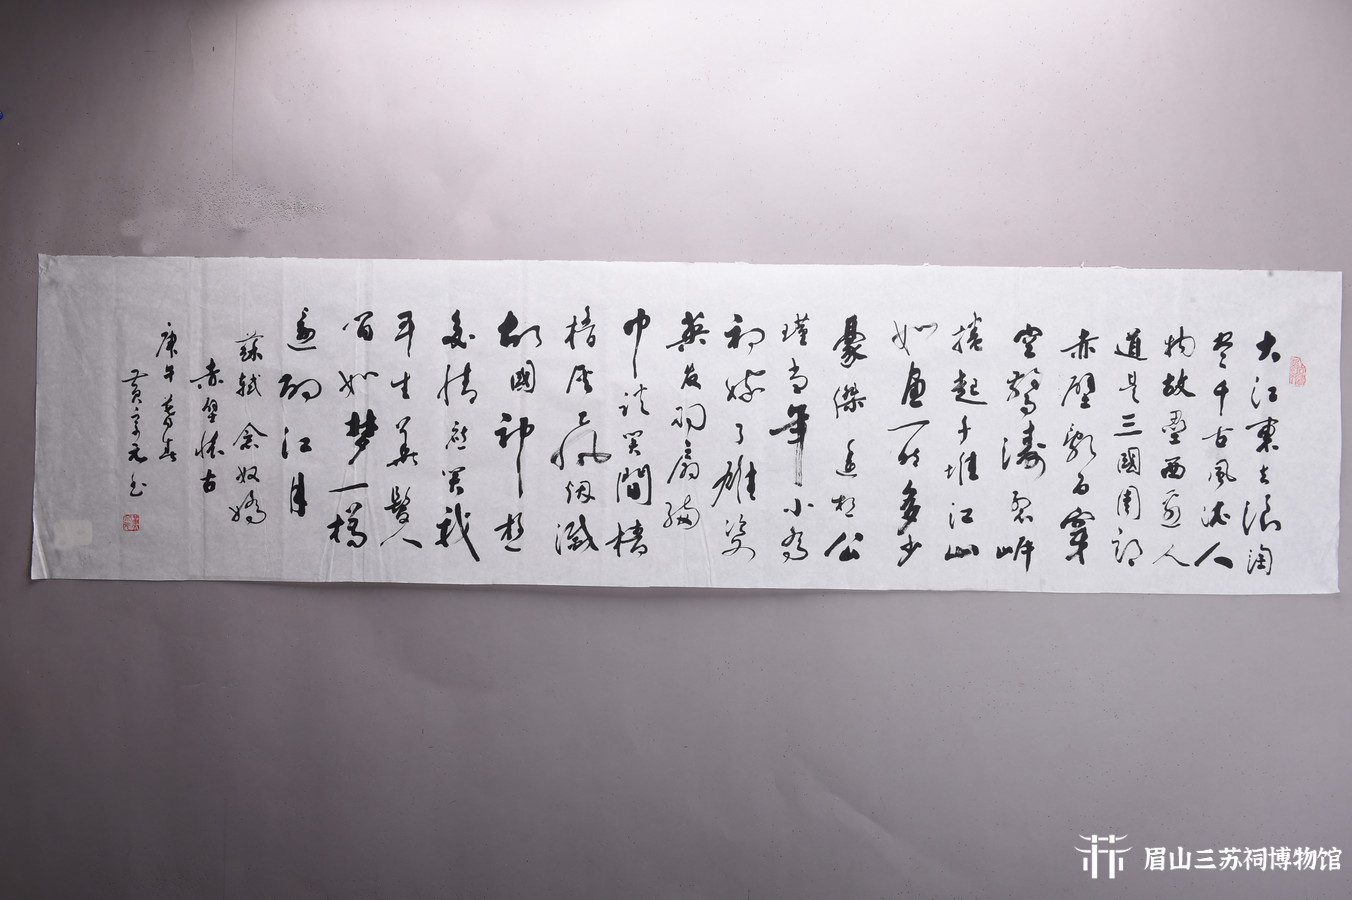 大江東去浪淘
尽千古風流人
物故壘西邊人
道是三國周郎
赤壁亂石穿
空驚濤裂岸
捲起千堆江山
如画一时多少
豪傑遥想公
瑾当年小喬
初嫁了雄姿
英发羽扇綸
巾談笑間檣
櫓灰飛烟滅
故國神遊
多情應笑我
早生華髮人
間如梦一樽
還酹江月
蘇軾念奴嬌
赤壁懷古
庚午暮春
黄元书
眉山三苏祠博物馆